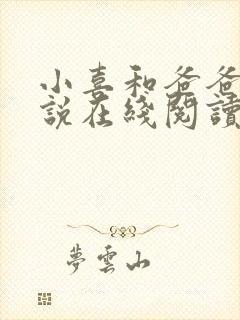 小喜和爸爸
說在綫閱讀
夢雲山